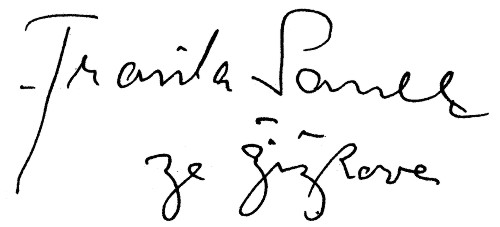 Franta Sauer
ze Žižkova